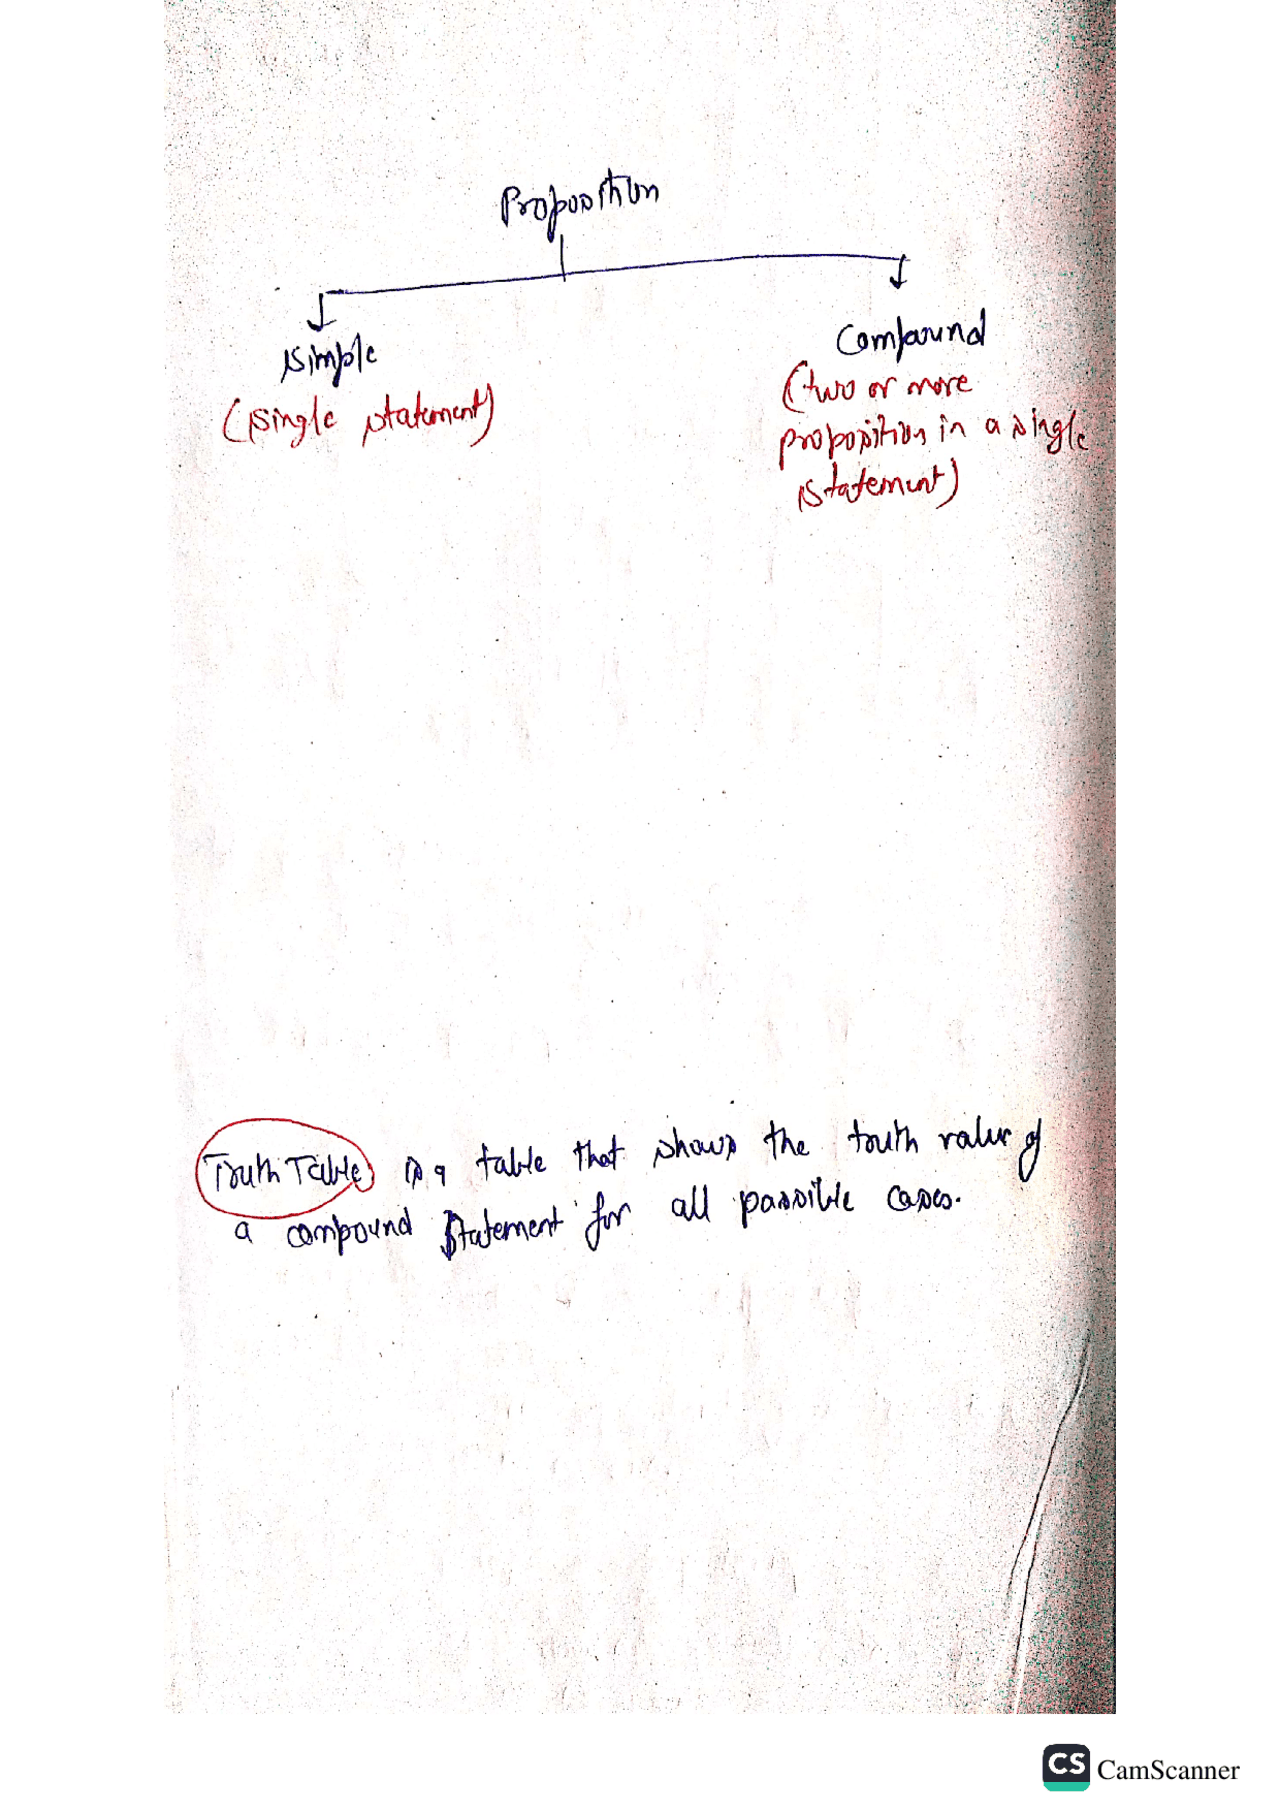 Proposition
Simple
Compound
(single statement)
(two or more
proposition in a single
statement)
Truth Table is a table that shows the truth value of
a compound statement for all possible cases.
CS CamScanner